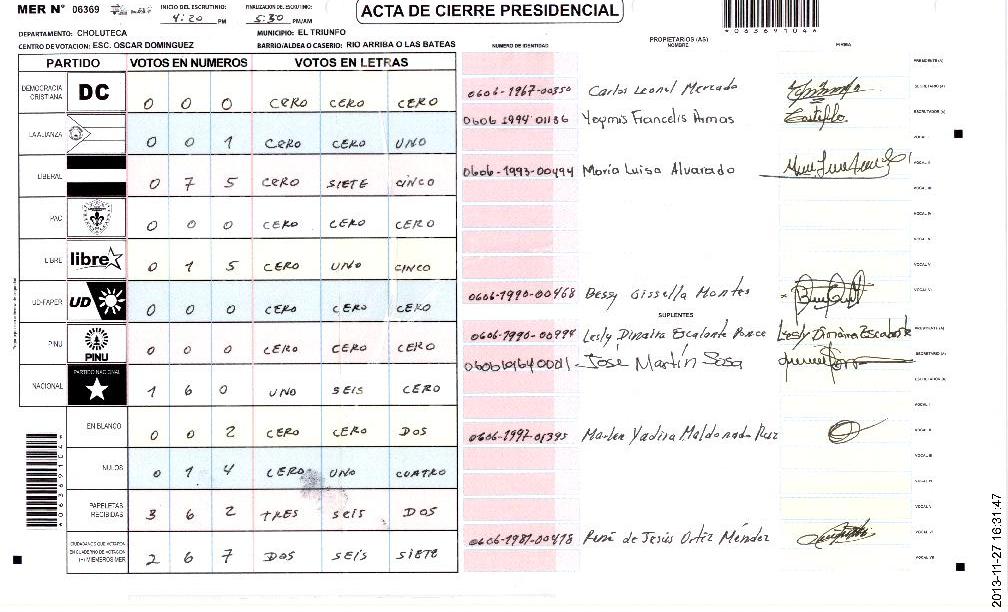 MER N° 06369
INICIO DEL ESCRUTINIO: 4:20 PM
FINALIZACION DEL ESCRUTINIO: 5:30 PM/AM
ACTA DE CIERRE PRESIDENCIAL
*06369104*
DEPARTAMENTO: CHOLUTECA
MUNICIPIO: EL TRIUNFO
CENTRO DE VOTACION: ESC. OSCAR DOMINGUEZ
BARRIO/ALDEA O CASERIO: RIO ARRIBA O LAS BATEAS
NUMERO DE IDENTIDAD
PROPIETARIOS (AS)
NOMBRE
FIRMA
PARTIDO VOTOS EN NUMEROS VOTOS EN LETRAS
DEMOCRACIA CRISTIANA DC 0 0 0 CERO CERO CERO
LA ALIANZA 0 0 1 CERO CERO UNO
LIBERAL 0 7 5 CERO SIETE CINCO
PAC 0 0 0 CERO CERO CERO
LIBRE libre 0 1 5 CERO UNO CINCO
UD-FAPER UD 0 0 0 CERO CERO CERO
PINU PINU 0 0 0 CERO CERO CERO
NACIONAL PARTIDO NACIONAL 1 6 0 UNO SEIS CERO
EN BLANCO 0 0 2 CERO CERO DOS
NULOS 0 1 4 CERO UNO CUATRO
PAPELETAS RECIBIDAS 3 6 2 TRES SEIS DOS
CIUDADANOS QUE VOTARON EN CUADERNO DE VOTACION (+) MIEMBROS MER 2 6 7 DOS SEIS SIETE
PRESIDENTE (A)
0606-1967-00350 Carlos Leonel Mercado SECRETARIO (A)
0606 1994 01136 Yeymis Francelis Armas Castillo. ESCRUTADOR (A)
VOCAL I
0606-1993-00494 María Luisa Alvarado VOCAL II
VOCAL III
VOCAL IV
VOCAL V
0606-1990-00468 Dessy Gissella Montes VOCAL VI
SUPLENTES
0606-1990-00994 Lesly Dinaira Escalante Ponce PRESIDENTE (A)
José Martín Sosa SECRETARIO (A)
ESCRUTADOR (A)
VOCAL I
0606-1997-01395 Marlen Yadira Maldonado Ruiz VOCAL II
VOCAL III
VOCAL V
0606-1987-00478 René de Jesús Ortiz Méndez VOCAL VI
VOCAL VII
*06369104*
2013-11-27 16:31:47